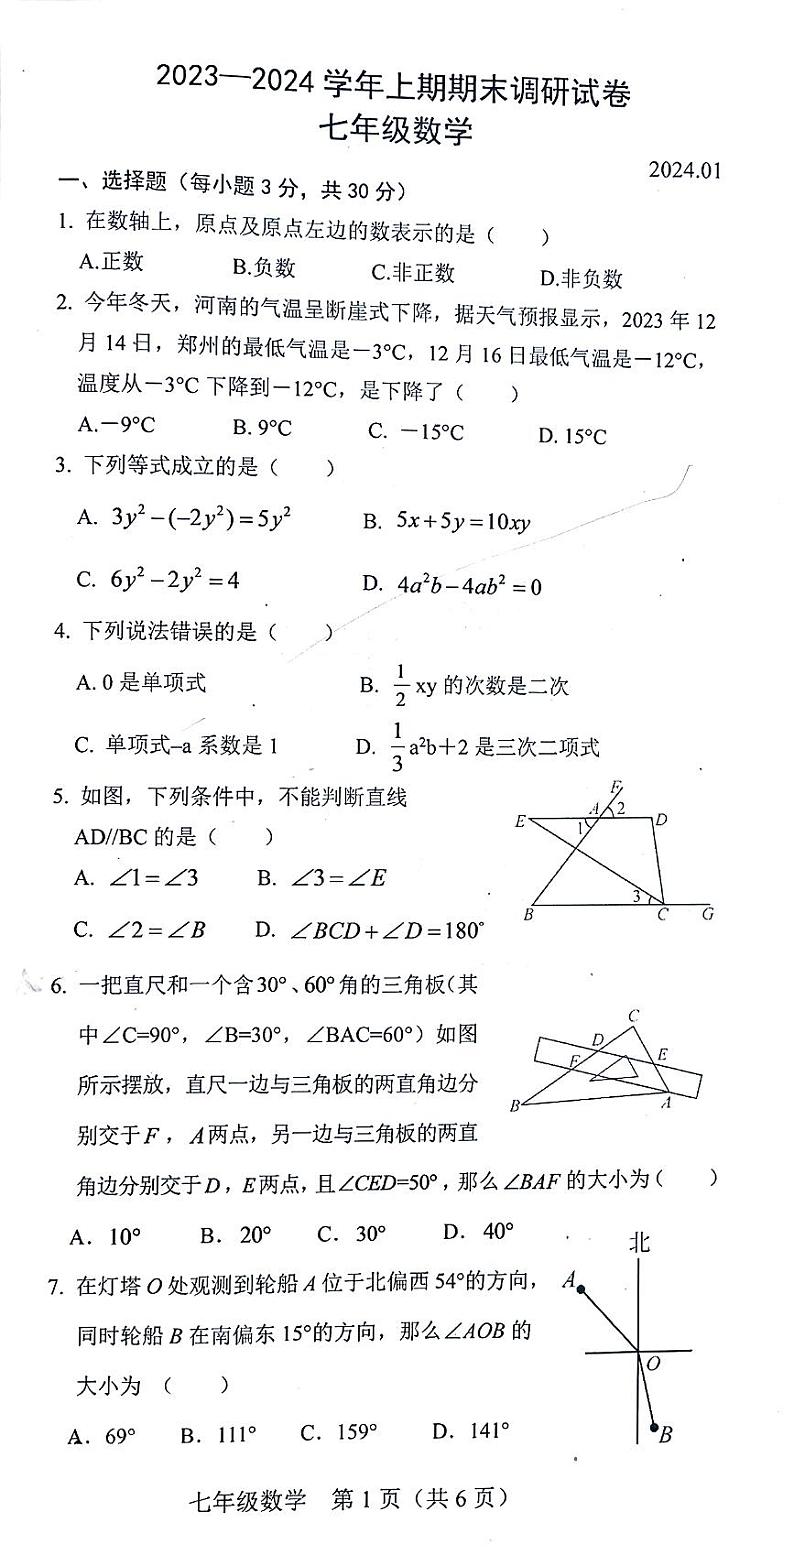 2023—2024 学年上期期末调研试卷
七年级数学
2024.01
一、选择题（每小题 3 分，共 30 分）
1. 在数轴上，原点及原点左边的数表示的是（　　）
A.正数　　B.负数　　C.非正数　　D.非负数
2. 今年冬天，河南的气温呈断崖式下降，据天气预报显示，2023 年 12
月 14 日，郑州的最低气温是－3°C，12 月 16 日最低气温是－12°C，
温度从－3°C 下降到－12°C，是下降了（　　）
A.－9°C　　B. 9°C　　C. －15°C　　D. 15°C
3. 下列等式成立的是（　　）
A. 3y²－(－2y²)＝5y²　　B. 5x＋5y＝10xy
C. 6y²－2y²＝4　　D. 4a²b－4ab²＝0
4. 下列说法错误的是（　　）
A. 0 是单项式　　B. 1/2 xy 的次数是二次
C. 单项式–a 系数是 1　　D. 1/3 a²b＋2 是三次二项式
5. 如图，下列条件中，不能判断直线
AD//BC 的是（　　）
A. ∠1＝∠3　　B. ∠3＝∠E
C. ∠2＝∠B　　D. ∠BCD＋∠D＝180°
F
E A 2 D
1
3
B C G
6. 一把直尺和一个含30°、60°角的三角板（其
中∠C=90°，∠B=30°，∠BAC=60°）如图
所示摆放，直尺一边与三角板的两直角边分
别交于F，A两点，另一边与三角板的两直
角边分别交于D，E两点，且∠CED=50°，那么∠BAF的大小为（　　）
A．10°　　B．20°　　C．30°　　D．40°
C
D
F E
B A
7. 在灯塔 O 处观测到轮船 A 位于北偏西 54°的方向，
同时轮船 B 在南偏东 15°的方向，那么∠AOB 的
大小为 （　　）
A．69°　　B．111°　　C．159°　　D．141°
北
A
O
B
七年级数学　第 1 页（共 6 页）